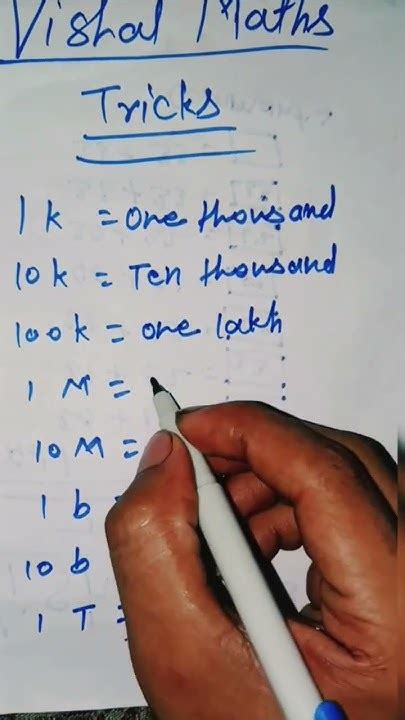 Vishal Maths
Tricks
1 k = one thousand
10 k = Ten thousand
100 k = one lakh
1 M =
10 M =
1 b =
10 b
1 T =